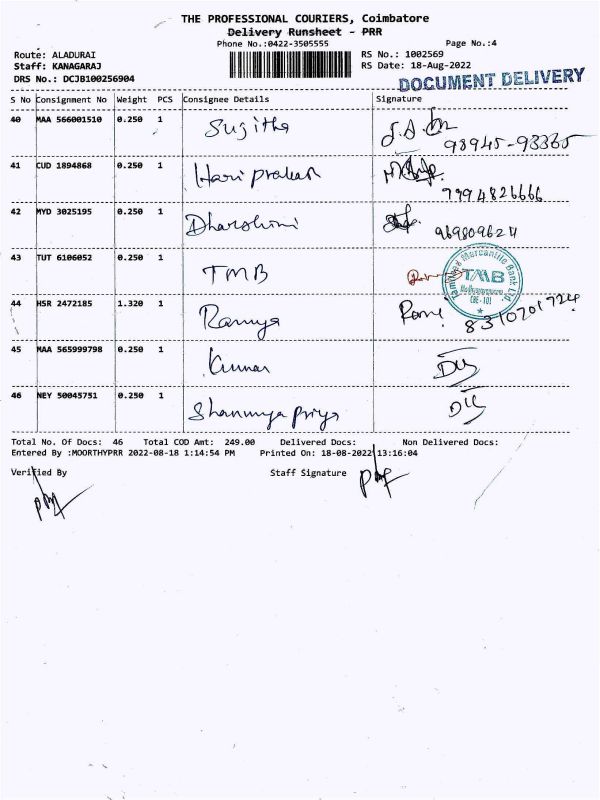 THE PROFESSIONAL COURIERS, Coimbatore
Delivery Runsheet - PRR
Phone No.:0422-3505555 Page No.:4
Route: ALADURAI RS No.: 1002569
Staff: KANAGARAJ RS Date: 18-Aug-2022
DRS No.: DCJB100256904 DOCUMENT DELIVERY
S No Consignment No Weight PCS Consignee Details Signature
40 MAA 566001510 0.250 1 Sujitha
98945-93365
41 CUD 1894868 0.250 1 Hari prakash
7994826666
42 MYD 3025195 0.250 1 Dharshini
9698096211
43 TUT 6106052 0.250 1 TMB
Tamilnad Mercantile Bank Ltd.
TMB
(BE-10)
44 HSR 2472185 1.320 1 Ramya
8310701724
45 MAA 565999798 0.250 1 Kumar
46 NEY 50045751 0.250 1 Shanmuga priya
Total No. Of Docs: 46 Total COD Amt: 249.00 Delivered Docs: Non Delivered Docs:
Entered By :MOORTHYPRR 2022-08-18 1:14:54 PM Printed On: 18-08-2022 13:16:04
Verified By Staff Signature